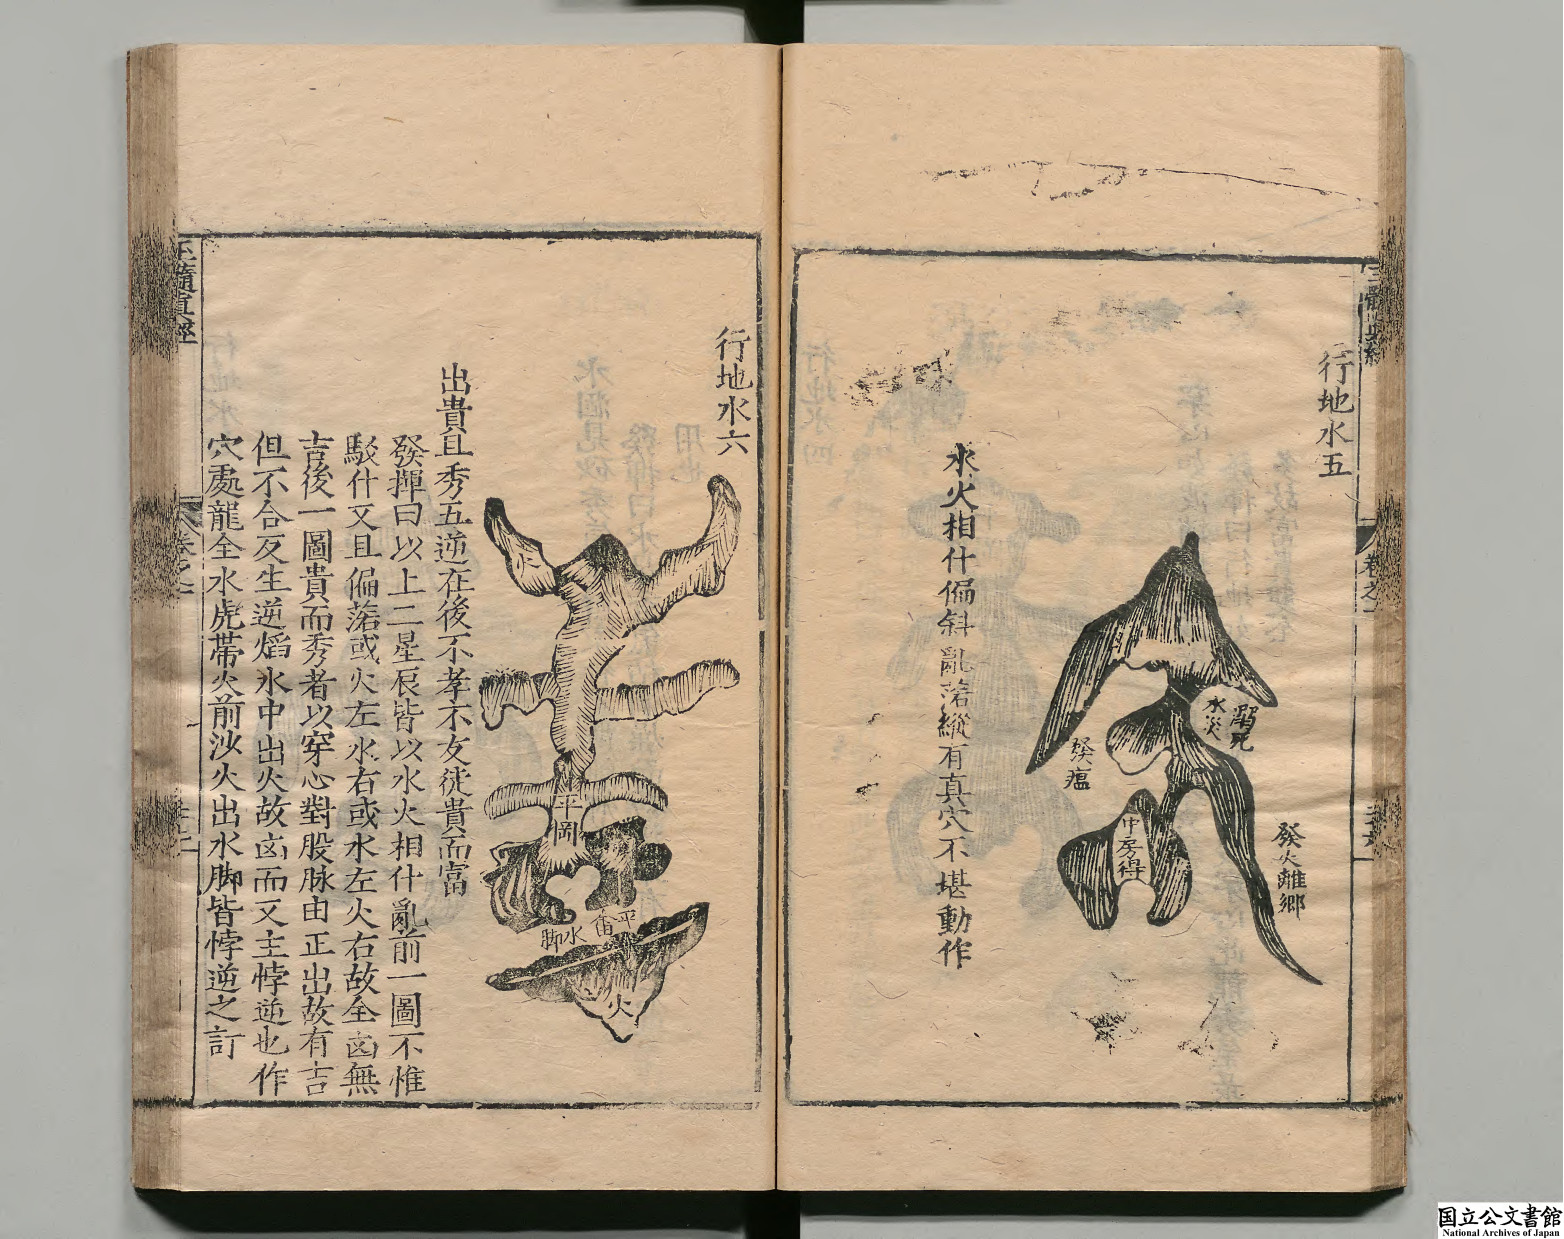 行地水五
溺死
水災
發瘟
中房得
發火離鄉
水火相什偏斜亂落縱有真穴不堪動作
行地水六
平岡
平田
水脚
火
出貴且秀五逆在後不孝不友從貴而富
發揮曰以上二星辰皆以水火相什亂前一圖不惟
駁什又且偏落或火左水右或水左火右故全凶無
吉後一圖貴而秀者以穿心對股脉由正出故有吉
但不合反生逆焰水中出火故凶而又主悖逆也作
穴處龍全水虎帶火前沙火出水脚皆悖逆之訂
玉髓真經
國立公文書館
National Archives of Japan